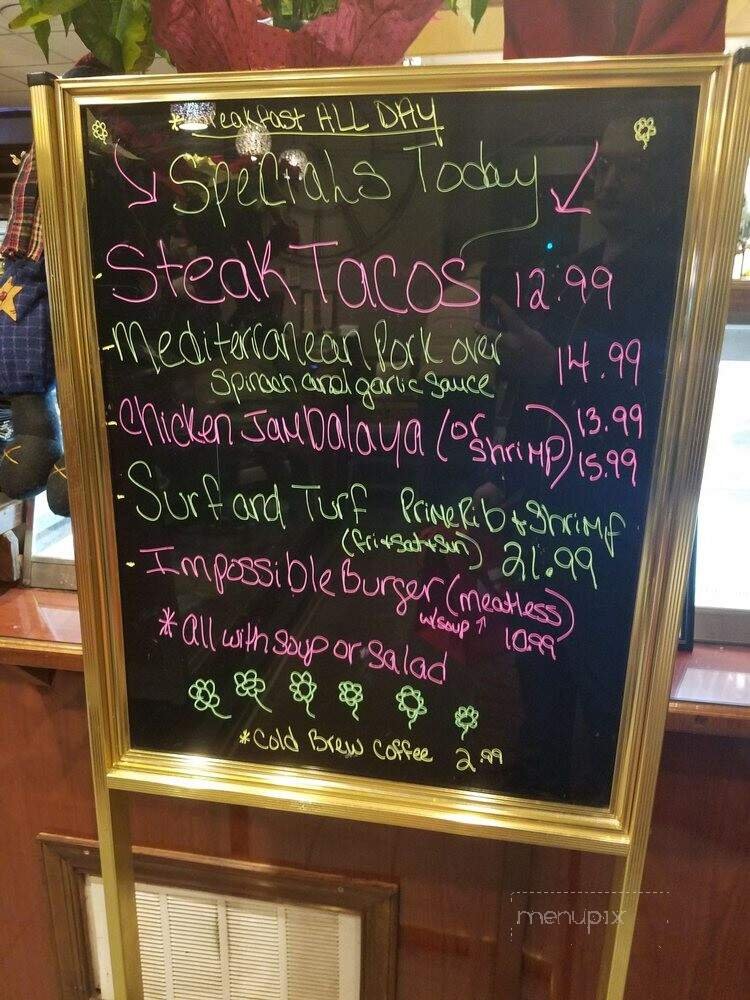 * Breakfast ALL DAY
Specials Today
Steak Tacos 12.99
- Mediterranean Pork over 14.99
Spinach and garlic sauce
- Chicken Jambalaya (or shrimp) 13.99
15.99
- Surf and Turf Prime Rib & Shrimp
(fri + sat + sun) 21.99
- Impossible Burger (meatless)
w/soup ↑ 10.99
* All with soup or salad
* Cold Brew Coffee 2.99
menupix